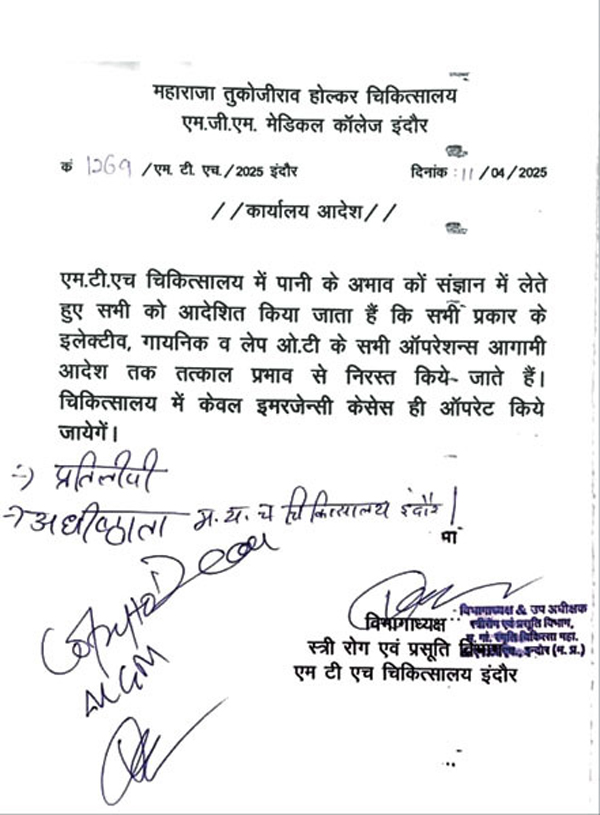 महाराजा तुकोजीराव होल्कर चिकित्सालय
एम.जी.एम. मेडिकल कॉलेज इंदौर
कं 1269 /एम. टी. एच./2025 इंदौर दिनांक :11/04/2025
//कार्यालय आदेश//
एम.टी.एच चिकित्सालय में पानी के अभाव कों संज्ञान में लेते
हुए सभी को आदेशित किया जाता हैं कि सभी प्रकार के
इलेक्टीव, गायनिक व लेप ओ.टी के सभी ऑपरेशन्स आगामी
आदेश तक तत्काल प्रभाव से निरस्त किये जाते हैं।
चिकित्सालय में केवल इमरजेन्सी केसेस ही ऑपरेट किये
जायेगें।
प्रतिलीपी
→ अधीष्ठाता म.य.च चिकित्सालय इंदौर
Dean
MGM
विभागाध्यक्ष
विभागाध्यक्ष & उप अधीक्षक
स्त्रीरोग एवं प्रसूति विभाग,
स्त्री रोग एवं प्रसूति विभाग
इन्दौर (म.प्र.)
एम टी एच चिकित्सालय इंदौर